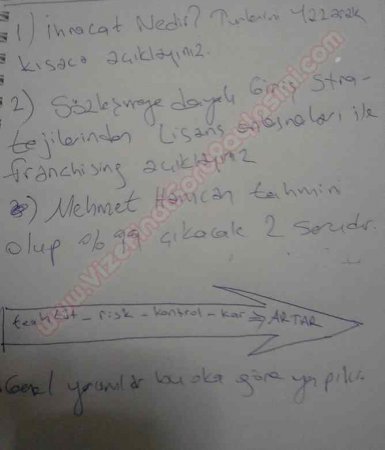 1) ihracat Nedir? Türlerini Yazarak
kısaca açıklayınız.
2) Sözleşmeye dayalı Giriş stra-
tejilerinden Lisans anlaşmaları ile
franchising açıklayınız
3) Mehmet Hamican tahmini
olup %99 çıkacak 2 sorudur.
taahhüt - risk - kontrol - kar => ARTAR
Genel yorumlar bu oka göre yapılır.
www.VizeVeFinalSoruPaylasimi.com